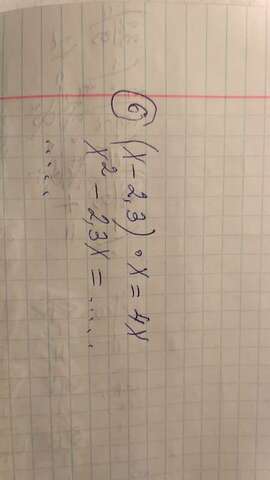 6 (x - 2,3) · x = 4x
x² - 2,3x = ......
.....